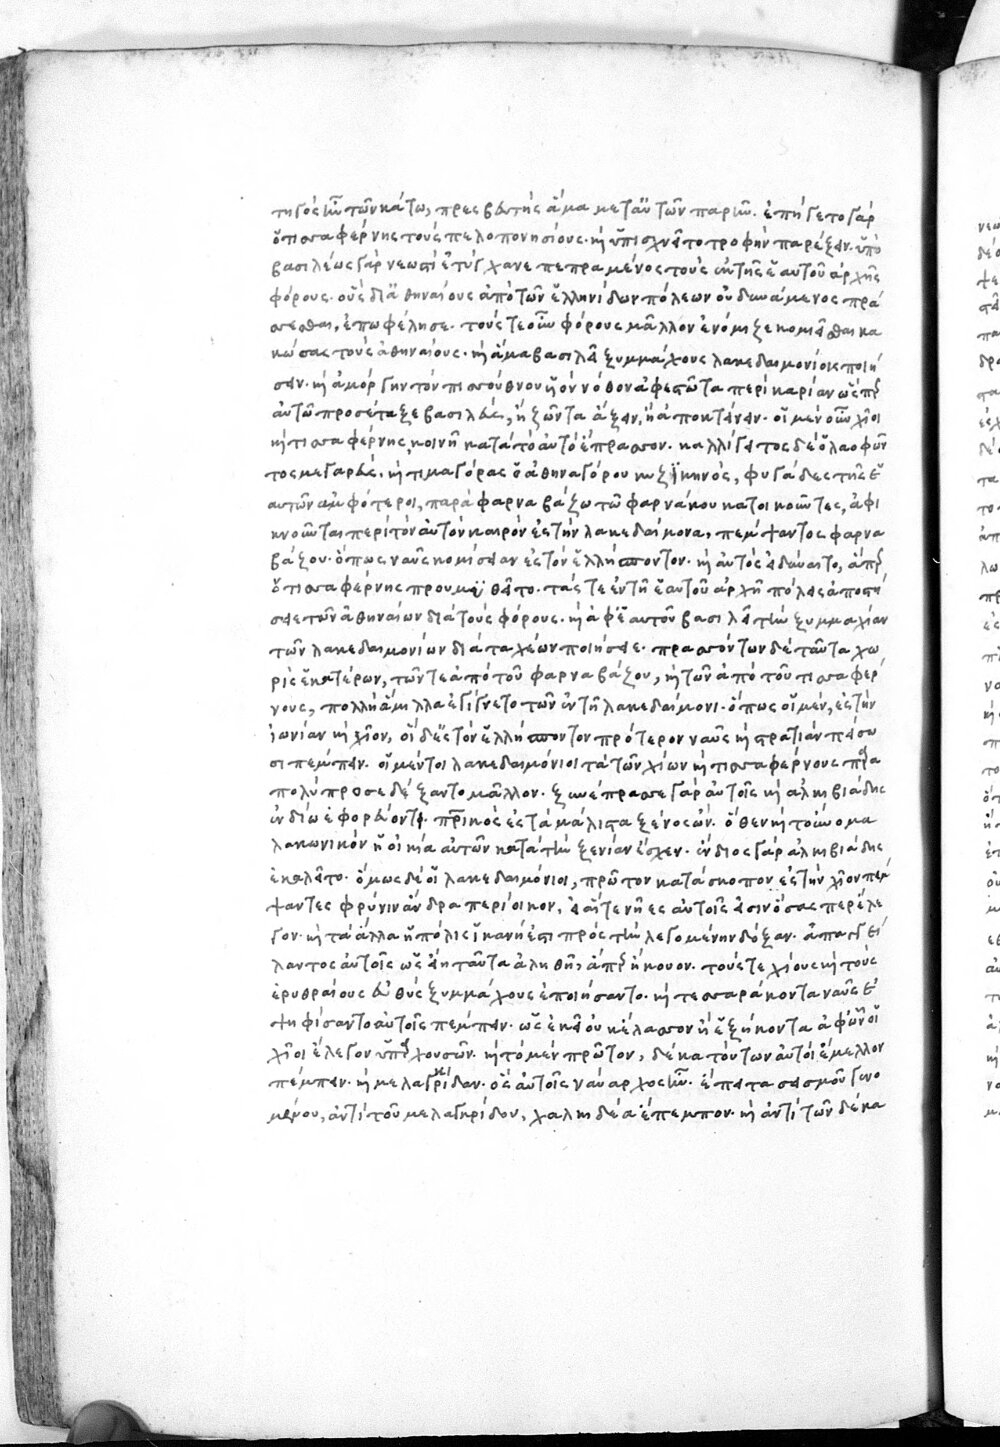 τηγὸς ἦν τῶν κάτω, πρεσβευτὴς ἅμα μετ' αὐτῶν παρῆν. ἐπήγετο γὰρ
ὁ τισσαφέρνης τοὺς πελοπονησίους. καὶ ὑπισχνεῖτο τροφὴν παρέξειν. ὑπὸ
βασιλέως γὰρ νεωστὶ ἐτύγχανε πεπραγμένος τοὺς ἐκ τῆς ἑαυτοῦ ἀρχῆς
φόρους. οὓς δι' ἀθηναίους ἀπὸ τῶν ἑλληνίδων πόλεων οὐ δυνάμενος πρά
σσεσθαι, ἐπωφείλησε. τούς τε οὖν φόρους μᾶλλον ἐνόμιζε κομιεῖσθαι κα
κώσας τοὺς ἀθηναίους. καὶ ἅμα βασιλεῖ ξυμμάχους λακεδαιμονίους ποιή
σειν. καὶ ἀμόργην τὸν πισσούθνου υἱὸν νόθον ἀφεστῶτα περὶ καρίαν ὥσπερ
αὐτῷ προσέταξε βασιλεύς, ἢ ζῶντα ἄξειν, ἢ ἀποκτείνειν. οἱ μὲν οὖν χῖοι
καὶ τισσαφέρνης κοινῇ κατὰ τὸ αὐτὸ ἔπρασσον. καλλίγειτος δὲ ὁ λαοφῶν
τος μεγαρεύς. καὶ τιμαγόρας ὁ ἀθηναγόρου κυζικηνός, φυγάδες τῆς ἑ
αυτῶν ἀμφότεροι, παρὰ φαρναβάζῳ τῷ φαρνάκου κατοικοῦντες, ἀφι
κνοῦνται περὶ τὸν αὐτὸν καιρὸν ἐς τὴν λακεδαίμονα, πέμψαντος φαρνα
βάζου. ὅπως ναῦς κομίσειαν ἐς τὸν ἑλλήσποντον. καὶ αὐτὸς εἰ δύναιτο, ἅπερ
ὁ τισσαφέρνης προυθυμεῖτο. τάς τε ἐν τῇ ἑαυτοῦ ἀρχῇ πόλεις ἀποστή
σειε τῶν ἀθηναίων διὰ τοὺς φόρους. καὶ ἀφ' ἑαυτοῦ βασιλεῖ τὴν ξυμμαχίαν
τῶν λακεδαιμονίων διὰ ταχέων ποιήσειε. πρασσόντων δὲ ταῦτα χω
ρὶς ἑκατέρων, τῶν τε ἀπὸ τοῦ φαρναβάζου, καὶ τῶν ἀπὸ τοῦ τισσαφέρ
νους, πολλὴ ἅμιλλα ἐγίγνετο τῶν ἐν τῇ λακεδαίμονι. ὅπως οἱ μέν, ἐς τὴν
ἰωνίαν καὶ χῖον, οἱ δὲ ἐς τὸν ἑλλήσποντον πρότερον ναῦς καὶ στρατιὰν πείσω
σι πέμπειν. οἱ μέντοι λακεδαιμόνιοι τὰ τῶν χίων καὶ τισσαφέρνους παρὰ
πολὺ προσεδέξαντο μᾶλλον. ξυνέπρασσε γὰρ αὐτοῖς καὶ ἀλκιβιάδης
ἐνδίῳ ἐφορεύοντι. πατρικὸς ἐς τὰ μάλιστα ξένος ὤν. ὅθεν καὶ τοὔνομα
λακωνικὸν ἡ οἰκία αὐτῶν κατὰ τὴν ξενίαν ἔσχεν. ἔνδιος γὰρ ἀλκιβιάδης
ἐκαλεῖτο. ὅμως δὲ οἱ λακεδαιμόνιοι, πρῶτον κατάσκοπον ἐς τὴν χῖον πέμ
ψαντες φρύνιν ἄνδρα περίοικον, εἰ αἵ τε νῆες αὐτοῖς εἰσιν ὅσας περ ἔλε
γον. καὶ τὰ ἄλλα ἡ πόλις ἱκανή ἐστι πρὸς τὴν λεγομένην δόξαν. ἀπαγγεί
λαντος αὐτοῖς ὡς εἴη ταῦτα ἀληθῆ, ἅπερ ἤκουον. τούς τε χίους καὶ τοὺς
ἐρυθραίους εὐθὺς ξυμμάχους ἐποιήσαντο. καὶ τεσσαράκοντα ναῦς ἐ
ψηφίσαντο αὐτοῖς πέμπειν. ὡς ἐκεῖ οὐκ ἔλασσον ἢ ἑξήκοντα ἀφ' ὧν οἱ
χῖοι ἔλεγον ὑπαρχουσῶν. καὶ τὸ μὲν πρῶτον, δέκα τούτων αὐτοὶ ἔμελλον
πέμπειν. καὶ μελαγκρίδαν. ὃς αὐτοῖς ναύαρχος ἦν. ἔπειτα σεισμοῦ γενο
μένου, ἀντὶ τοῦ μελαγκρίδου, χαλκιδέα ἔπεμπον. καὶ ἀντὶ τῶν δέκα